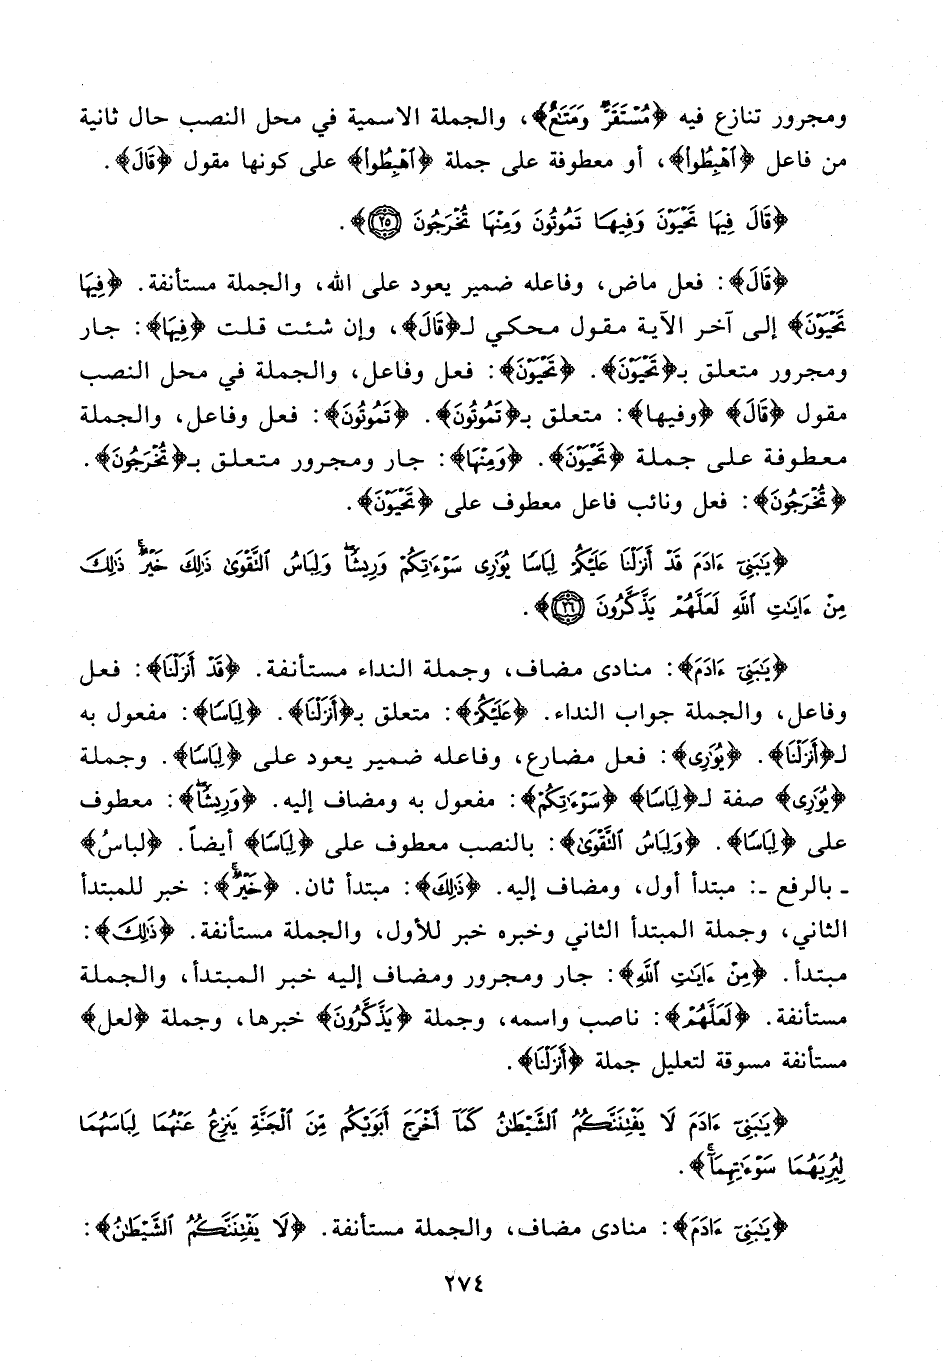 ومجرور تنازع فيه ﴿مُسْتَقَرٌّ وَمَتَاعٌ﴾، والجملة الاسمية في محل النصب حال ثانية
من فاعل ﴿ٱهْبِطُوا﴾، أو معطوفة على جملة ﴿ٱهْبِطُوا﴾ على كونها مقول ﴿قَالَ﴾.
﴿قَالَ فِيهَا تَحْيَوْنَ وَفِيهَا تَمُوتُونَ وَمِنْهَا تُخْرَجُونَ ۝٢٥﴾.
﴿قَالَ﴾: فعل ماض، وفاعله ضمير يعود على الله، والجملة مستأنفة. ﴿فِيهَا
تَحْيَوْنَ﴾ إلى آخر الآية مقول محكي لـ﴿قَالَ﴾، وإن شئت قلت ﴿فِيهَا﴾: جار
ومجرور متعلق بـ﴿تَحْيَوْنَ﴾. ﴿تَحْيَوْنَ﴾: فعل وفاعل، والجملة في محل النصب
مقول ﴿قَالَ﴾ ﴿وفيها﴾: متعلق بـ﴿تَمُوتُونَ﴾. ﴿تَمُوتُونَ﴾: فعل وفاعل، والجملة
معطوفة على جملة ﴿تَحْيَوْنَ﴾. ﴿وَمِنْهَا﴾: جار ومجرور متعلق بـ﴿تُخْرَجُونَ﴾.
﴿تُخْرَجُونَ﴾: فعل ونائب فاعل معطوف على ﴿تَحْيَوْنَ﴾.
﴿يَٰبَنِىٓ ءَادَمَ قَدْ أَنزَلْنَا عَلَيْكُمْ لِبَاسًا يُوَٰرِى سَوْءَٰتِكُمْ وَرِيشًاۖ وَلِبَاسُ ٱلنَّقْوَىٰ ذَٰلِكَ خَيْرٌۚ ذَٰلِكَ
مِنْ ءَايَٰتِ ٱللَّهِ لَعَلَّهُمْ يَذَّكَّرُونَ ۝٢٦﴾.
﴿يَٰبَنِىٓ ءَادَمَ﴾: منادى مضاف، وجملة النداء مستأنفة. ﴿قَدْ أَنزَلْنَا﴾: فعل
وفاعل، والجملة جواب النداء. ﴿عَلَيْكُمْ﴾: متعلق بـ﴿أَنزَلْنَا﴾. ﴿لِبَاسًا﴾: مفعول به
لـ﴿أَنزَلْنَا﴾. ﴿يُوَٰرِى﴾: فعل مضارع، وفاعله ضمير يعود على ﴿لِبَاسًا﴾. وجملة
﴿يُوَٰرِى﴾ صفة لـ﴿لِبَاسًا﴾ ﴿سَوْءَٰتِكُمْ﴾: مفعول به ومضاف إليه. ﴿وَرِيشًاۖ﴾: معطوف
على ﴿لِبَاسًا﴾. ﴿وَلِبَاسُ ٱلنَّقْوَىٰ﴾: بالنصب معطوف على ﴿لِبَاسًا﴾ أيضاً. ﴿لباسُ﴾
ـ بالرفع ـ: مبتدأ أول، ومضاف إليه. ﴿ذَٰلِكَ﴾: مبتدأ ثان. ﴿خَيْرٌۚ﴾: خبر للمبتدأ
الثاني، وجملة المبتدأ الثاني وخبره خبر للأول، والجملة مستأنفة. ﴿ذَٰلِكَ﴾:
مبتدأ. ﴿مِنْ ءَايَٰتِ ٱللَّهِ﴾: جار ومجرور ومضاف إليه خبر المبتدأ، والجملة
مستأنفة. ﴿لَعَلَّهُمْ﴾: ناصب واسمه، وجملة ﴿يَذَّكَّرُونَ﴾ خبرها، وجملة ﴿لعل﴾
مستأنفة مسوقة لتعليل جملة ﴿أَنزَلْنَا﴾.
﴿يَٰبَنِىٓ ءَادَمَ لَا يَفْتِنَنَّكُمُ ٱلشَّيْطَٰنُ كَمَآ أَخْرَجَ أَبَوَيْكُم مِّنَ ٱلْجَنَّةِ يَنزِعُ عَنْهُمَا لِبَاسَهُمَا
لِيُرِيَهُمَا سَوْءَٰتِهِمَآۚ﴾.
﴿يَٰبَنِىٓ ءَادَمَ﴾: منادى مضاف، والجملة مستأنفة. ﴿لَا يَفْتِنَنَّكُمُ ٱلشَّيْطَٰنُ﴾:
٢٧٤